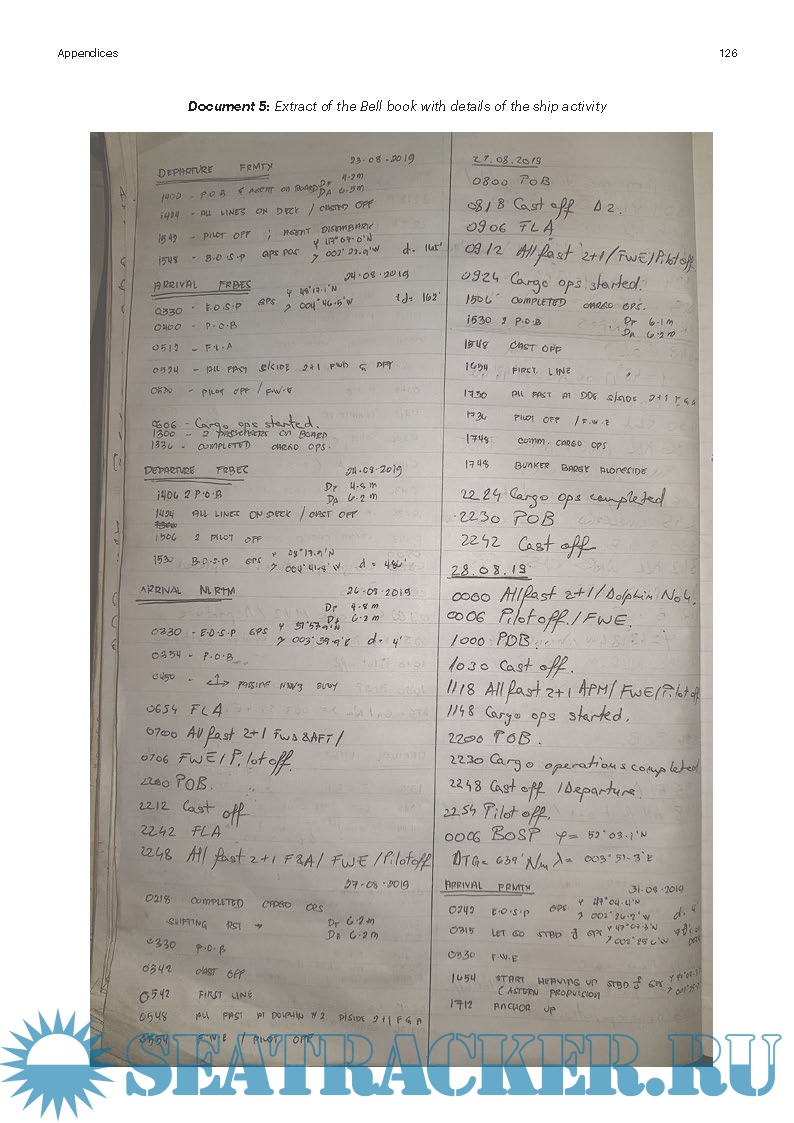 Appendices
126
Document 5: Extract of the Bell book with details of the ship activity
DEPARTURE FRMTX 23.08.2019
1400 - P.O.B & AGENT ON BOARD DF 4.2m
DA 6.5m
1424 - ALL LINES ON DECK / CASTED OFF
1542 - PILOT OFF ; AGENT DISEMBARK
1548 - B.O.S.P GPS POS φ 47°07.0'N
λ 002° 22.9'W d= 165'
ARRIVAL FRBES 24.08.2019
0330 - E.O.S.P GPS φ 48°17.1'N
λ 004° 46.5'W td= 162'
0400 - P.O.B
0512 - F.L.A
0524 - ALL FAST S/SIDE 2+1 FWD & AFT
0530 - PILOT OFF / F.W.E
0606 - Cargo ops started.
1300 - 2 PASSENGERS ON BOARD
1336 - COMPLETED CARGO OPS.
DEPARTURE FRBES 24.08.2019
1406 2 P.O.B DF 4.8m
DA 6.2m
1424 ALL LINES ON DECK / CAST OFF
1506 2 PILOT OFF
1530 B.O.S.P GPS φ 48°17.9'N
λ 004° 41.8'W d= 486'
ARRIVAL NLRTM 26.08.2019
DF 4.8m
DA 6.2m
0330 - E.O.S.P GPS φ 51°57.9'N
λ 003° 39.9'E d= 4'
0354 - P.O.B
0450 - PASSING NNW3 BUOY
0654 FLA
0700 All fast 2+1 FWD & AFT/
0706 FWE / Pilot off.
2200 POB.
2212 Cast off
2242 FLA
2248 All fast 2+1 F&A / FWE / Pilot off
27.08.2019
0218 COMPLETED CARGO OPS
SHIFTING RST → DF 6.2m
DA 6.2m
0330 P.O.B
0342 CAST OFF
0542 FIRST LINE
0548 ALL FAST AT DOLPHIN #2 P/SIDE 2+1 F & A
0554 F.W.E / PILOT OFF
27.08.2019
0800 POB
0818 Cast off Δ2.
0906 FLA
0912 All fast 2+1 / FWE / Pilot off
0924 Cargo ops started.
1506 COMPLETED CARGO OPS.
1530 2 P.O.B DF 6.1m
DA 6.2m
1548 CAST OFF
1654 FIRST LINE
1730 ALL FAST AT DDE S/SIDE 2+1 F & A
1736 PILOT OFF / F.W.E
1748 COMM. CARGO OPS
1748 BUNKER BARGE ALONGSIDE
2224 Cargo ops completed
2230 POB
2242 Cast off
28.08.19
0000 All fast 2+1 / Dolphin No4.
0006 Pilot off. / FWE.
1000 POB.
1030 Cast off.
1118 All fast 2+1 APM / FWE / Pilot off
1148 Cargo ops started.
2200 POB.
2230 Cargo operations completed
2248 Cast off / Departure.
2254 Pilot off.
0006 BOSP φ= 52°03.1'N
DTG= 639' Nm λ= 003° 51.3'E
ARRIVAL FRMTX 31.08.2019
0242 E.O.S.P GPS φ 47°04.4'N
λ 002° 26.2'W d= 4
0315 LET GO STBD ⚓ GPS φ 47°07.3'N
λ 002° 25.6'W
0330 F.W.E
1654 START HEAVING UP STBD ⚓ GPS
(ASTERN PROPULSION
1712 ANCHOR UP
SEATRACKER.RU